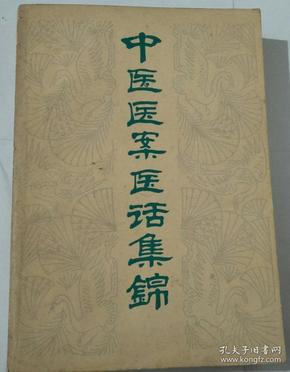 中医医案医话集锦
孔夫子旧书网
www.kongfz.com